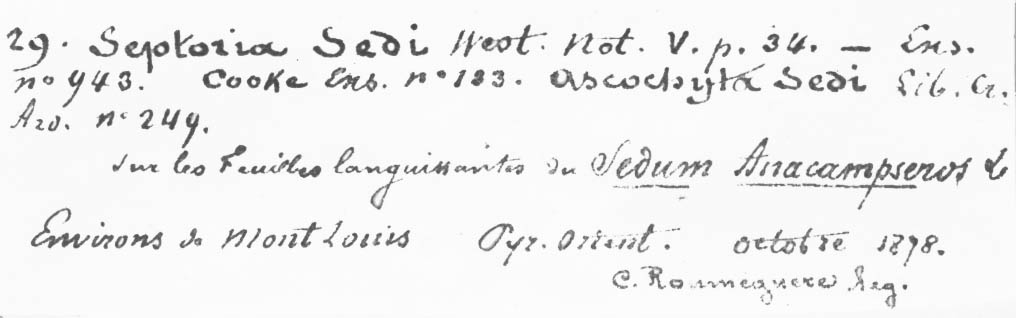 29. Septoria Sedi West. Not. V. p. 34. — Exs.
no 943. Cooke Exs. no 133. Ascochyta Sedi Lib. Cr.
Ard. no 249.
sur les Feuilles languissantes du Sedum Anacampseros L
Environs de Mont Louis Pyr. Orient. octobre 1878.
C. Roumeguere leg.